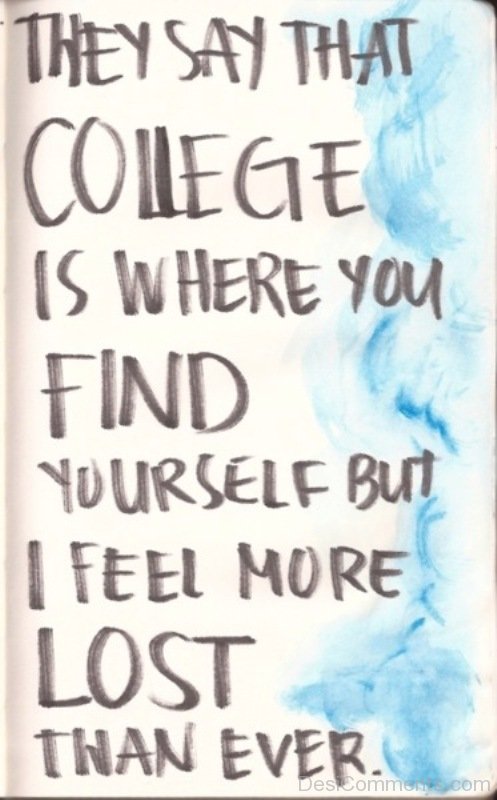 THEY SAY THAT
COLLEGE
IS WHERE YOU
FIND
YOURSELF BUT
I FEEL MORE
LOST
THAN EVER.
DesiComments.com